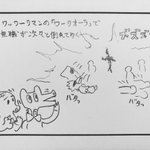 ワッワークマンの「ワークオーラ」で
無職が次々と倒れてゆく〜
バタッ
バタッ